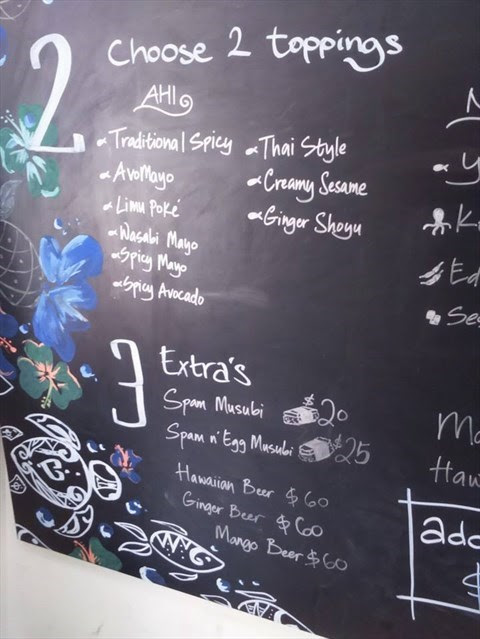 2 Choose 2 toppings
AHI
Traditional Spicy
AvoMayo
Limu Poké
Wasabi Mayo
Spicy Mayo
Spicy Avocado
Thai Style
Creamy Sesame
Ginger Shoyu
3 Extra's
Spam Musubi $20
Spam n' Egg Musubi $25
Hawaiian Beer $60
Ginger Beer $60
Mango Beer $60